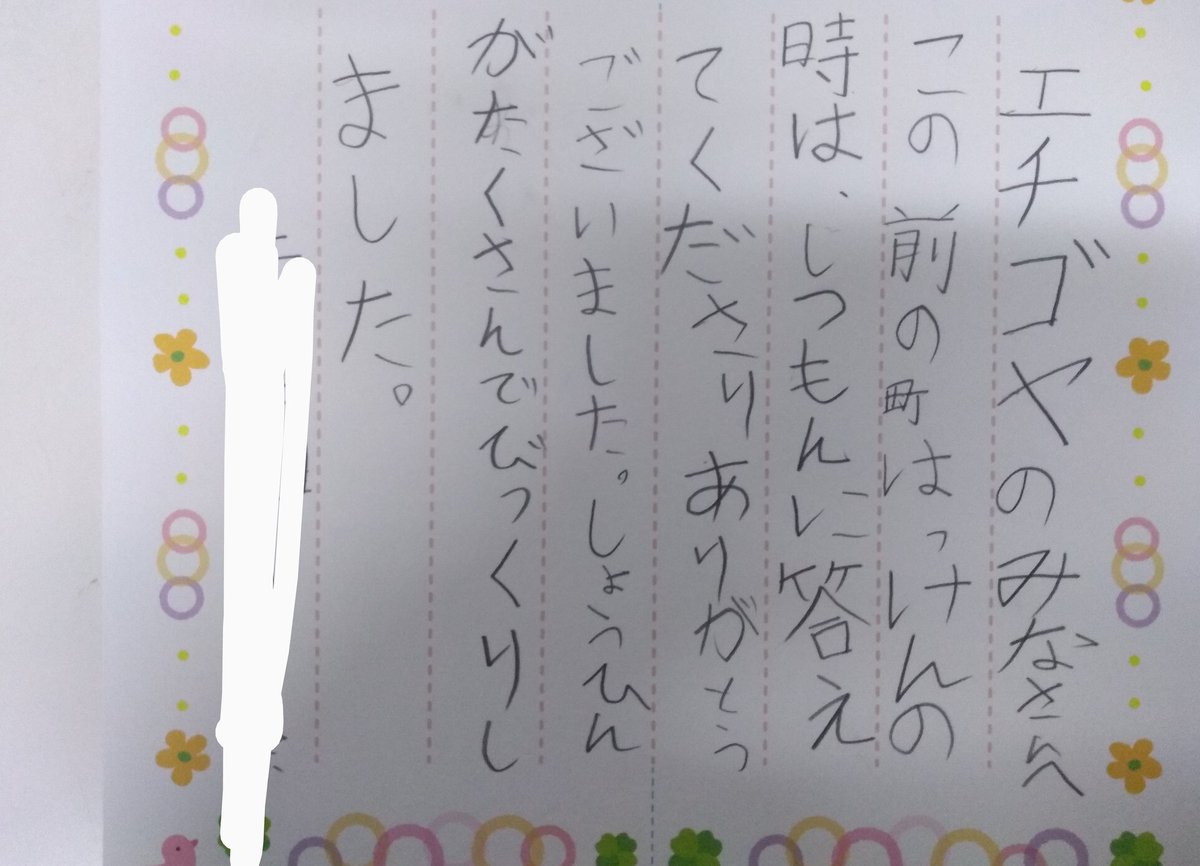 エチゴヤのみなさんへ
この前の町はっけんの
時は、しつもんに答え
てくださりありがとう
ございました。しょうひん
がたくさんでびっくりし
ました。